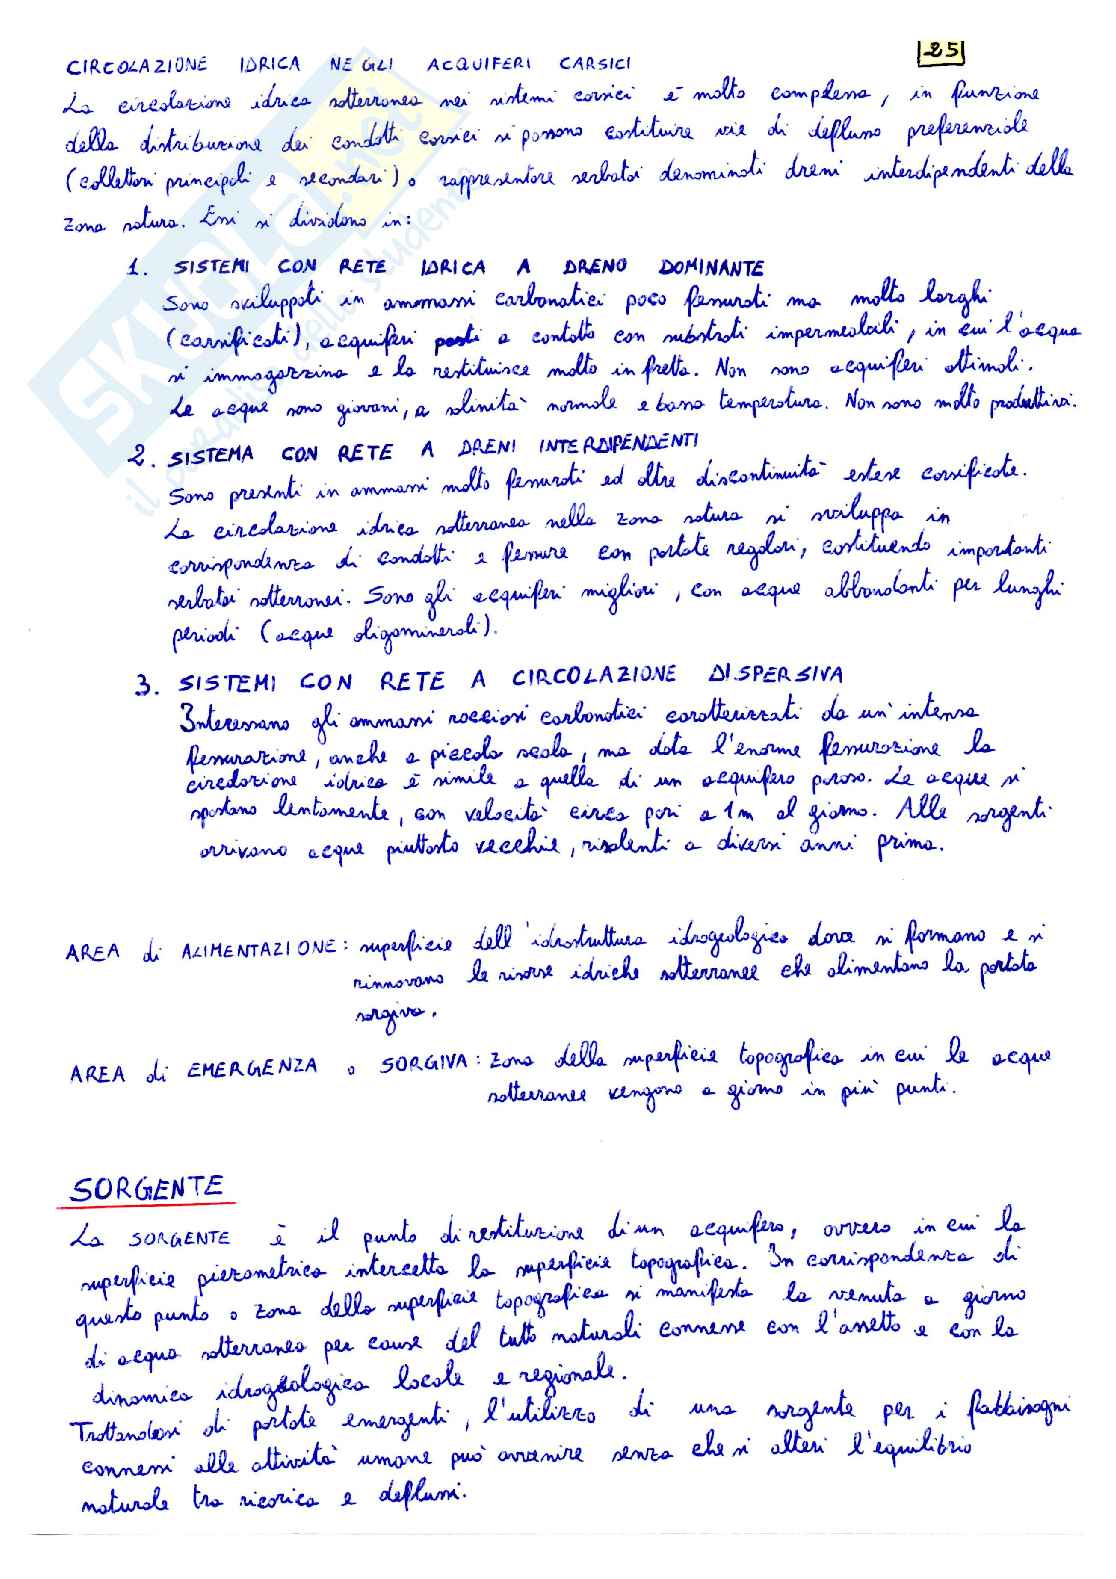 25
CIRCOLAZIONE IDRICA NEGLI ACQUIFERI CARSICI
La circolazione idrica sotterranea nei sistemi carsici è molto complessa, in funzione
della distribuzione dei condotti carsici si possono costituire vie di deflusso preferenziale
(collettori principali e secondari) o rappresentare serbatoi denominati dreni interdipendenti della
zona satura. Essi si dividono in:
1. SISTEMI CON RETE IDRICA A DRENO DOMINANTE
Sono sviluppati in ammassi carbonatici poco fessurati ma molto larghi
(carsificati), acquiferi posti a contatto con substrati impermeabili, in cui l'acqua
si immagazzina e la restituisce molto in fretta. Non sono acquiferi ottimali.
Le acque sono giovani, a salinità normale e bassa temperatura. Non sono molto produttivi.
2. SISTEMA CON RETE A DRENI INTERDIPENDENTI
Sono presenti in ammassi molto fessurati ed altre discontinuità estese carsificate.
La circolazione idrica sotterranea nella zona satura si sviluppa in
corrispondenza di condotti e fessure con portate regolari, costituendo importanti
serbatoi sotterranei. Sono gli acquiferi migliori, con acque abbondanti per lunghi
periodi (acque oligominerali).
3. SISTEMI CON RETE A CIRCOLAZIONE DISPERSIVA
Interessano gli ammassi rocciosi carbonatici caratterizzati da un'intensa
fessurazione, anche a piccola scala, ma data l'enorme fessurazione la
circolazione idrica è simile a quella di un acquifero poroso. Le acque si
spostano lentamente, con velocità circa pari a 1m al giorno. Alle sorgenti
arrivano acque piuttosto vecchie, risalenti a diversi anni prima.
AREA di ALIMENTAZIONE: superficie dell'idrostruttura idrogeologica dove si formano e si
rinnovano le risorse idriche sotterranee che alimentano la portata
sorgiva.
AREA di EMERGENZA o SORGIVA: zona della superficie topografica in cui le acque
sotterranee vengono a giorno in più punti.
SORGENTE
La SORGENTE è il punto di restituzione di un acquifero, ovvero in cui la
superficie piezometrica intercetta la superficie topografica. In corrispondenza di
questo punto o zona della superficie topografica si manifesta la venuta a giorno
di acqua sotterranea per cause del tutto naturali connesse con l'assetto e con la
dinamica idrogeologica locale e regionale.
Trattandosi di portate emergenti, l'utilizzo di una sorgente per i fabbisogni
connessi alle attività umane può avvenire senza che si alteri l'equilibrio
naturale tra ricarica e deflussi.
SKUOLA.net
il paradiso dello studente